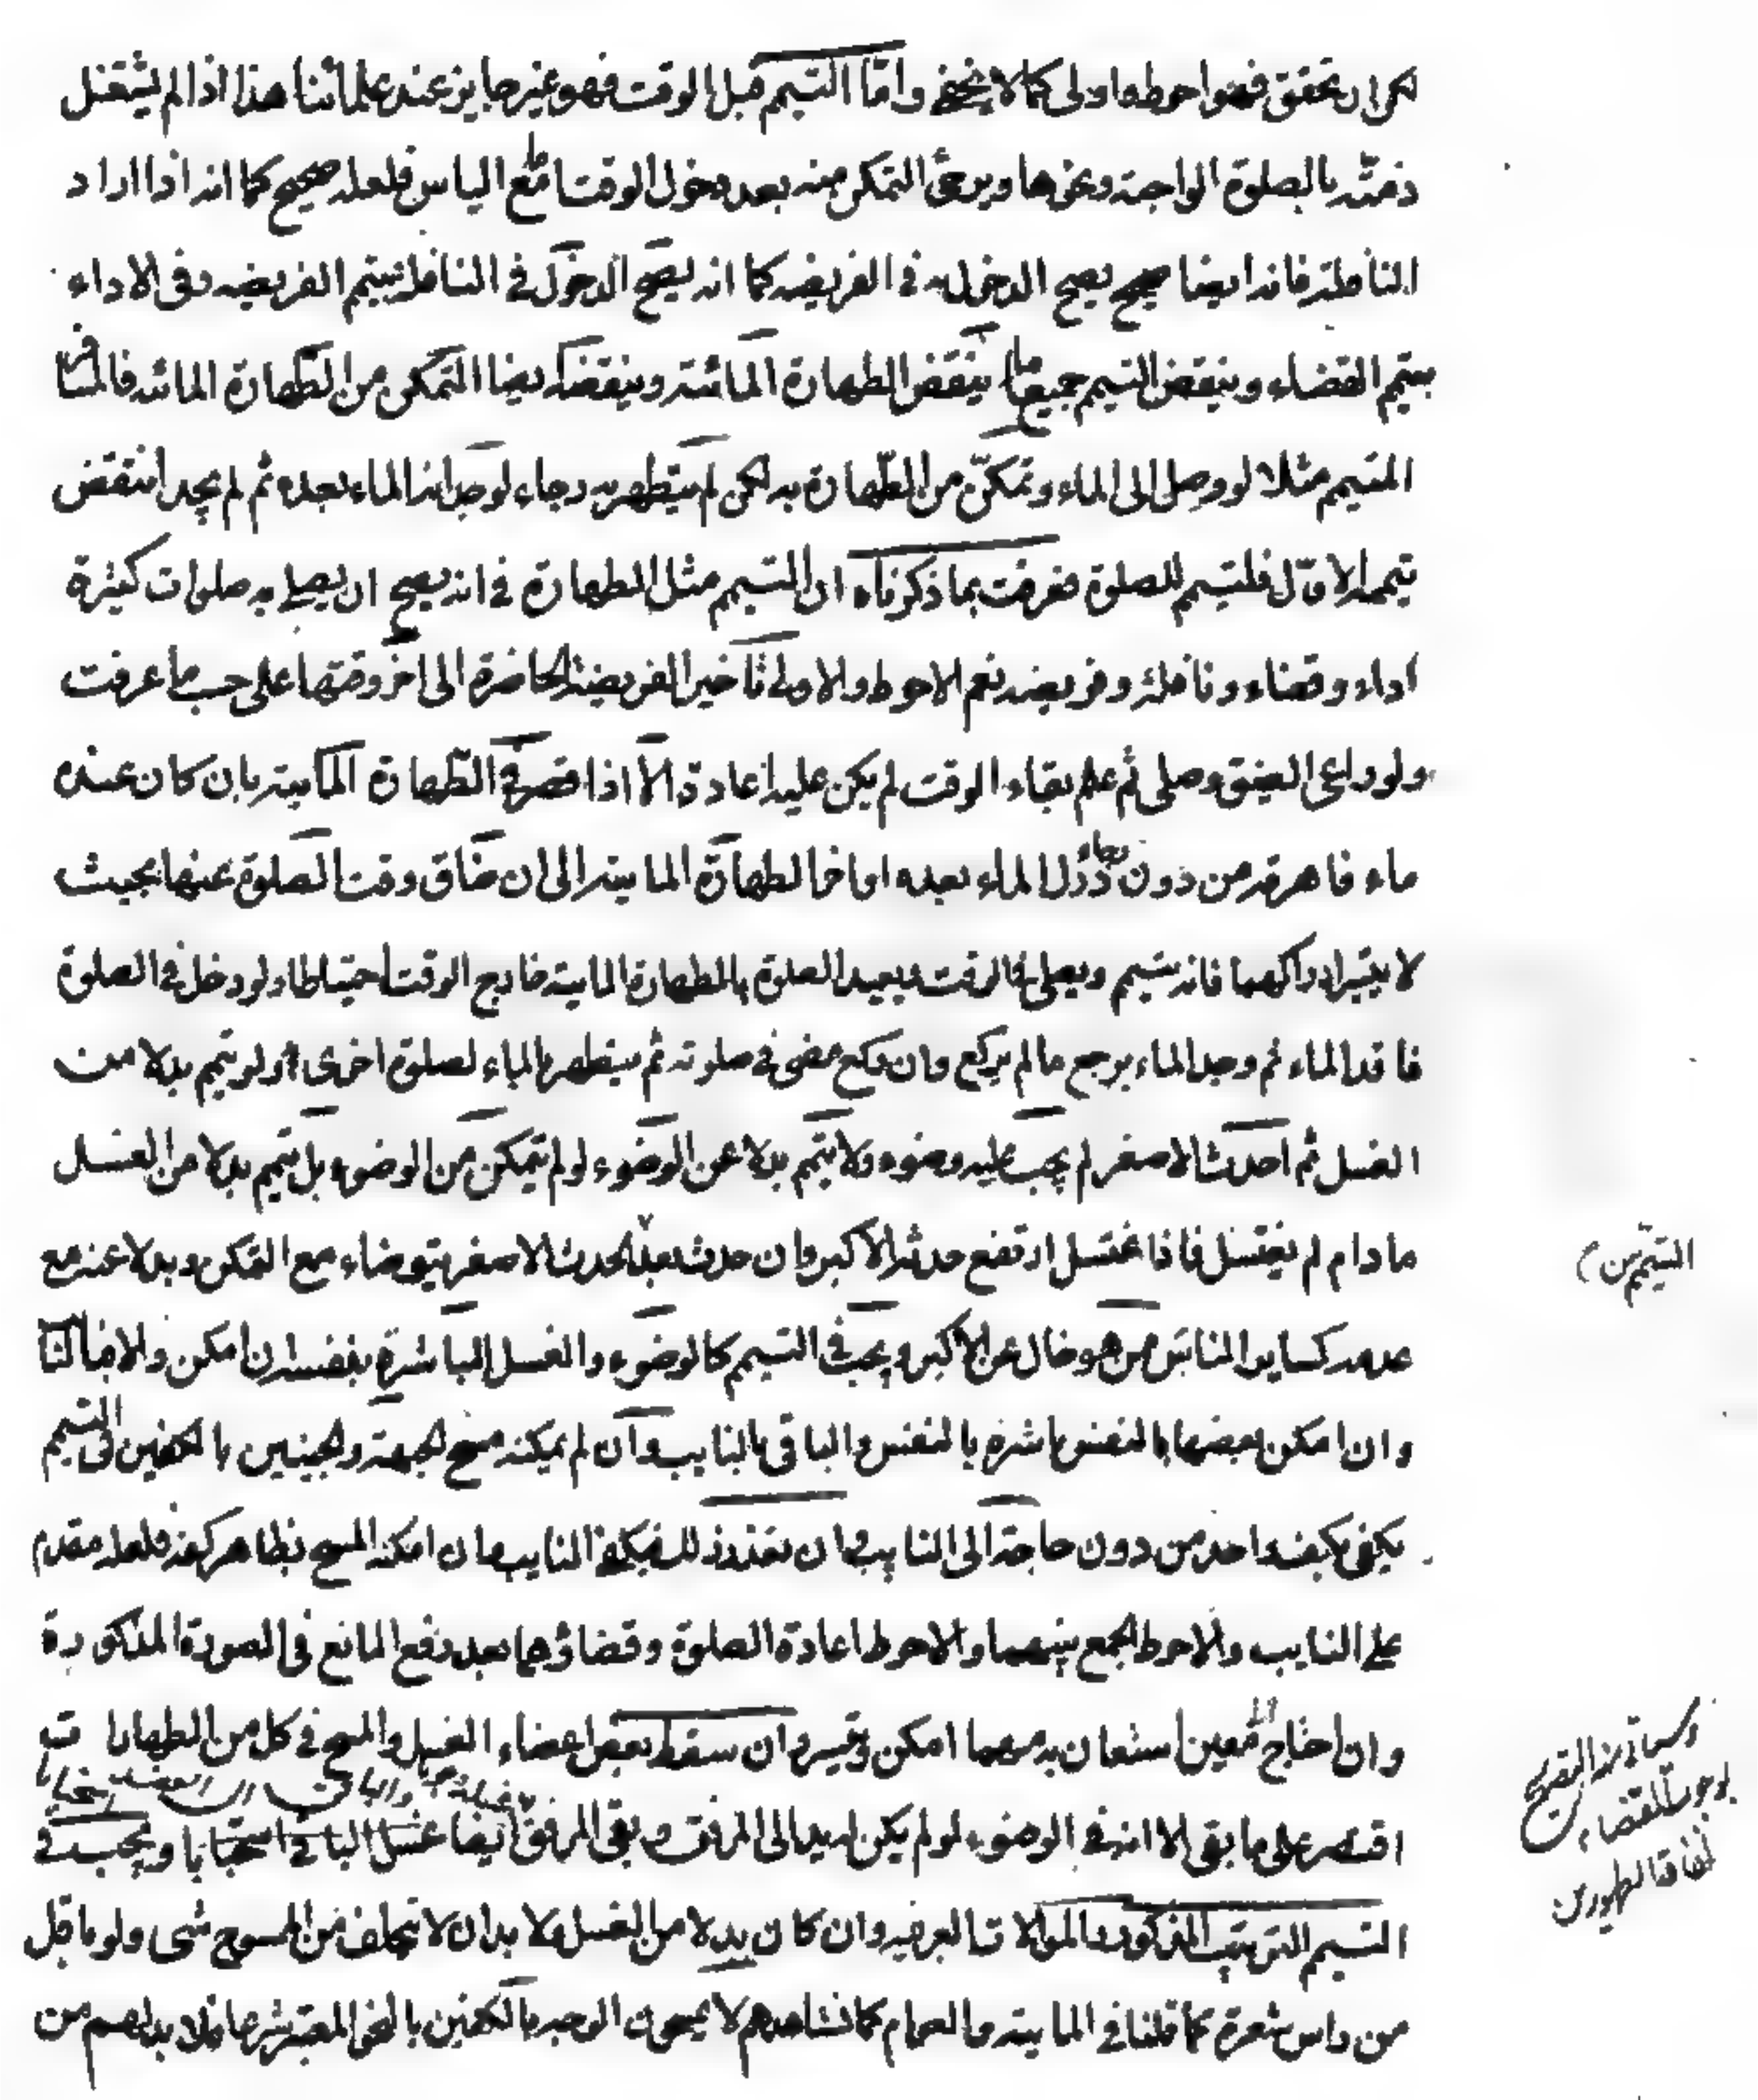 لكن ان تحقق فهو احوط واولى كما لا يخفى واما التيمم قبل الوقت فهو غير جايز عند علمائنا هذا اذا لم يشتغل
ذمته بالصلوة الواجبة ونحوها ويرجى التمكن منه بعد دخول الوقت اما مع الياس فلعله صحيح كما انه اذا اراد
النافلة فانه ايضا صحيح يصح الدخول به في الفريضه كما انه يصح الدخول في النافلة بتيمم الفريضه وفى الاداء
بتيمم القضاء وينقض التيمم جميع ما ينقض الطهارة المائية وينقضه ايضا التمكن من الطهارة المائية فالمسافر
المتيمم مثلا لو وصل الى الماء وتمكن من الطهارة به لكن لم يتطهر به رجاء لوجدانه الماء بعده ثم لم يجد انتقض
تيممه الاول فليتيمم للصلوة فعرفت بما ذكرناه ان التيمم مثل الطهارة في انه يصح ان يصلى به صلوات كثيرة
اداء وقضاء ونافلة وفريضة نعم الاحوط والاولى تاخير الفريضة الحاضرة الى اخر وقتها على حسب ما عرفت
ولو راعى الضيق وصلى ثم علم بقاء الوقت لم يكن عليه اعادة الا اذا قصر في الطهارة المايية بان كان عنده
ماء فاهرقه من دون رجاء الماء بعده او اخر الطهارة المايية الى ان ضاق وقت الصلوة عنها بحيث
لا يتيسر ادراكهما فانه يتيمم ويصلى في الوقت ويعيد الصلوة بالطهارة المايية خارج الوقت احتياطا ولو دخل في الصلوة
فاقد الماء ثم وجد الماء يرجع ما لم يركع وان ركع مضى في صلوته ثم يتطهر بالماء لصلوة اخرى ولو تيمم بدلا من
الغسل ثم احدث الاصغر لم يجب عليه وضوء ولا يتيمم بدلا عن الوضوء لو لم يتمكن من الوضوء بل تيمم بدلا من الغسل
ما دام لم يغتسل فاذا اغتسل ارتفع حدثه الاكبر وان حدث بعد الحدث الاصغر يتوضاء مع التمكن وبدلا عنه مع
عدمه كساير الناس من هو خال عن الاكبر ويجب في التيمم كالوضوء والغسل المباشرة بنفسه ان امكن والا فبالنا
وان امكن بعضها بالنفس باشره بالنفس والباقى بالنايب وان لم يمكنه مسح الجبهة والجبينين بالكفين في التيمم
يكفى بكف واحد من دون حاجة الى النايب وان تعذر ذلك فبكف النايب وان امكنه المسح بظاهر كفه فلعله مقدم
على النايب والاحوط الجمع بينهما والاحوط اعادة الصلوة وقضاؤهما بعد رفع المانع في الصورة المذكورة
وان احتاج الى معين استعان به مهما امكن وتيسر وان سقط بعض اعضاء الغسل والمسح في كل من الطهارات
اقتصر على ما بقى الا انه في الوضوء لو لم يكن له يد الى المرفق وبقى المرفق ايضا غسل الباقى استحبابا ويجب في
التيمم الترتيب المذكور والموالات العرفيه وان كان بدلا من الغسل ولا بد ان لا تتخلف من الممسوح شى ولو ما قل
من راس شعرة كما قلنا في المايية والعوام كما نشاهدهم لا يمسحون الوجه بالكفين بالنحو المعتبر شرعا فلا بد لهم من
التيمم من
بوجوب القضاء
لفاقد الطهورين